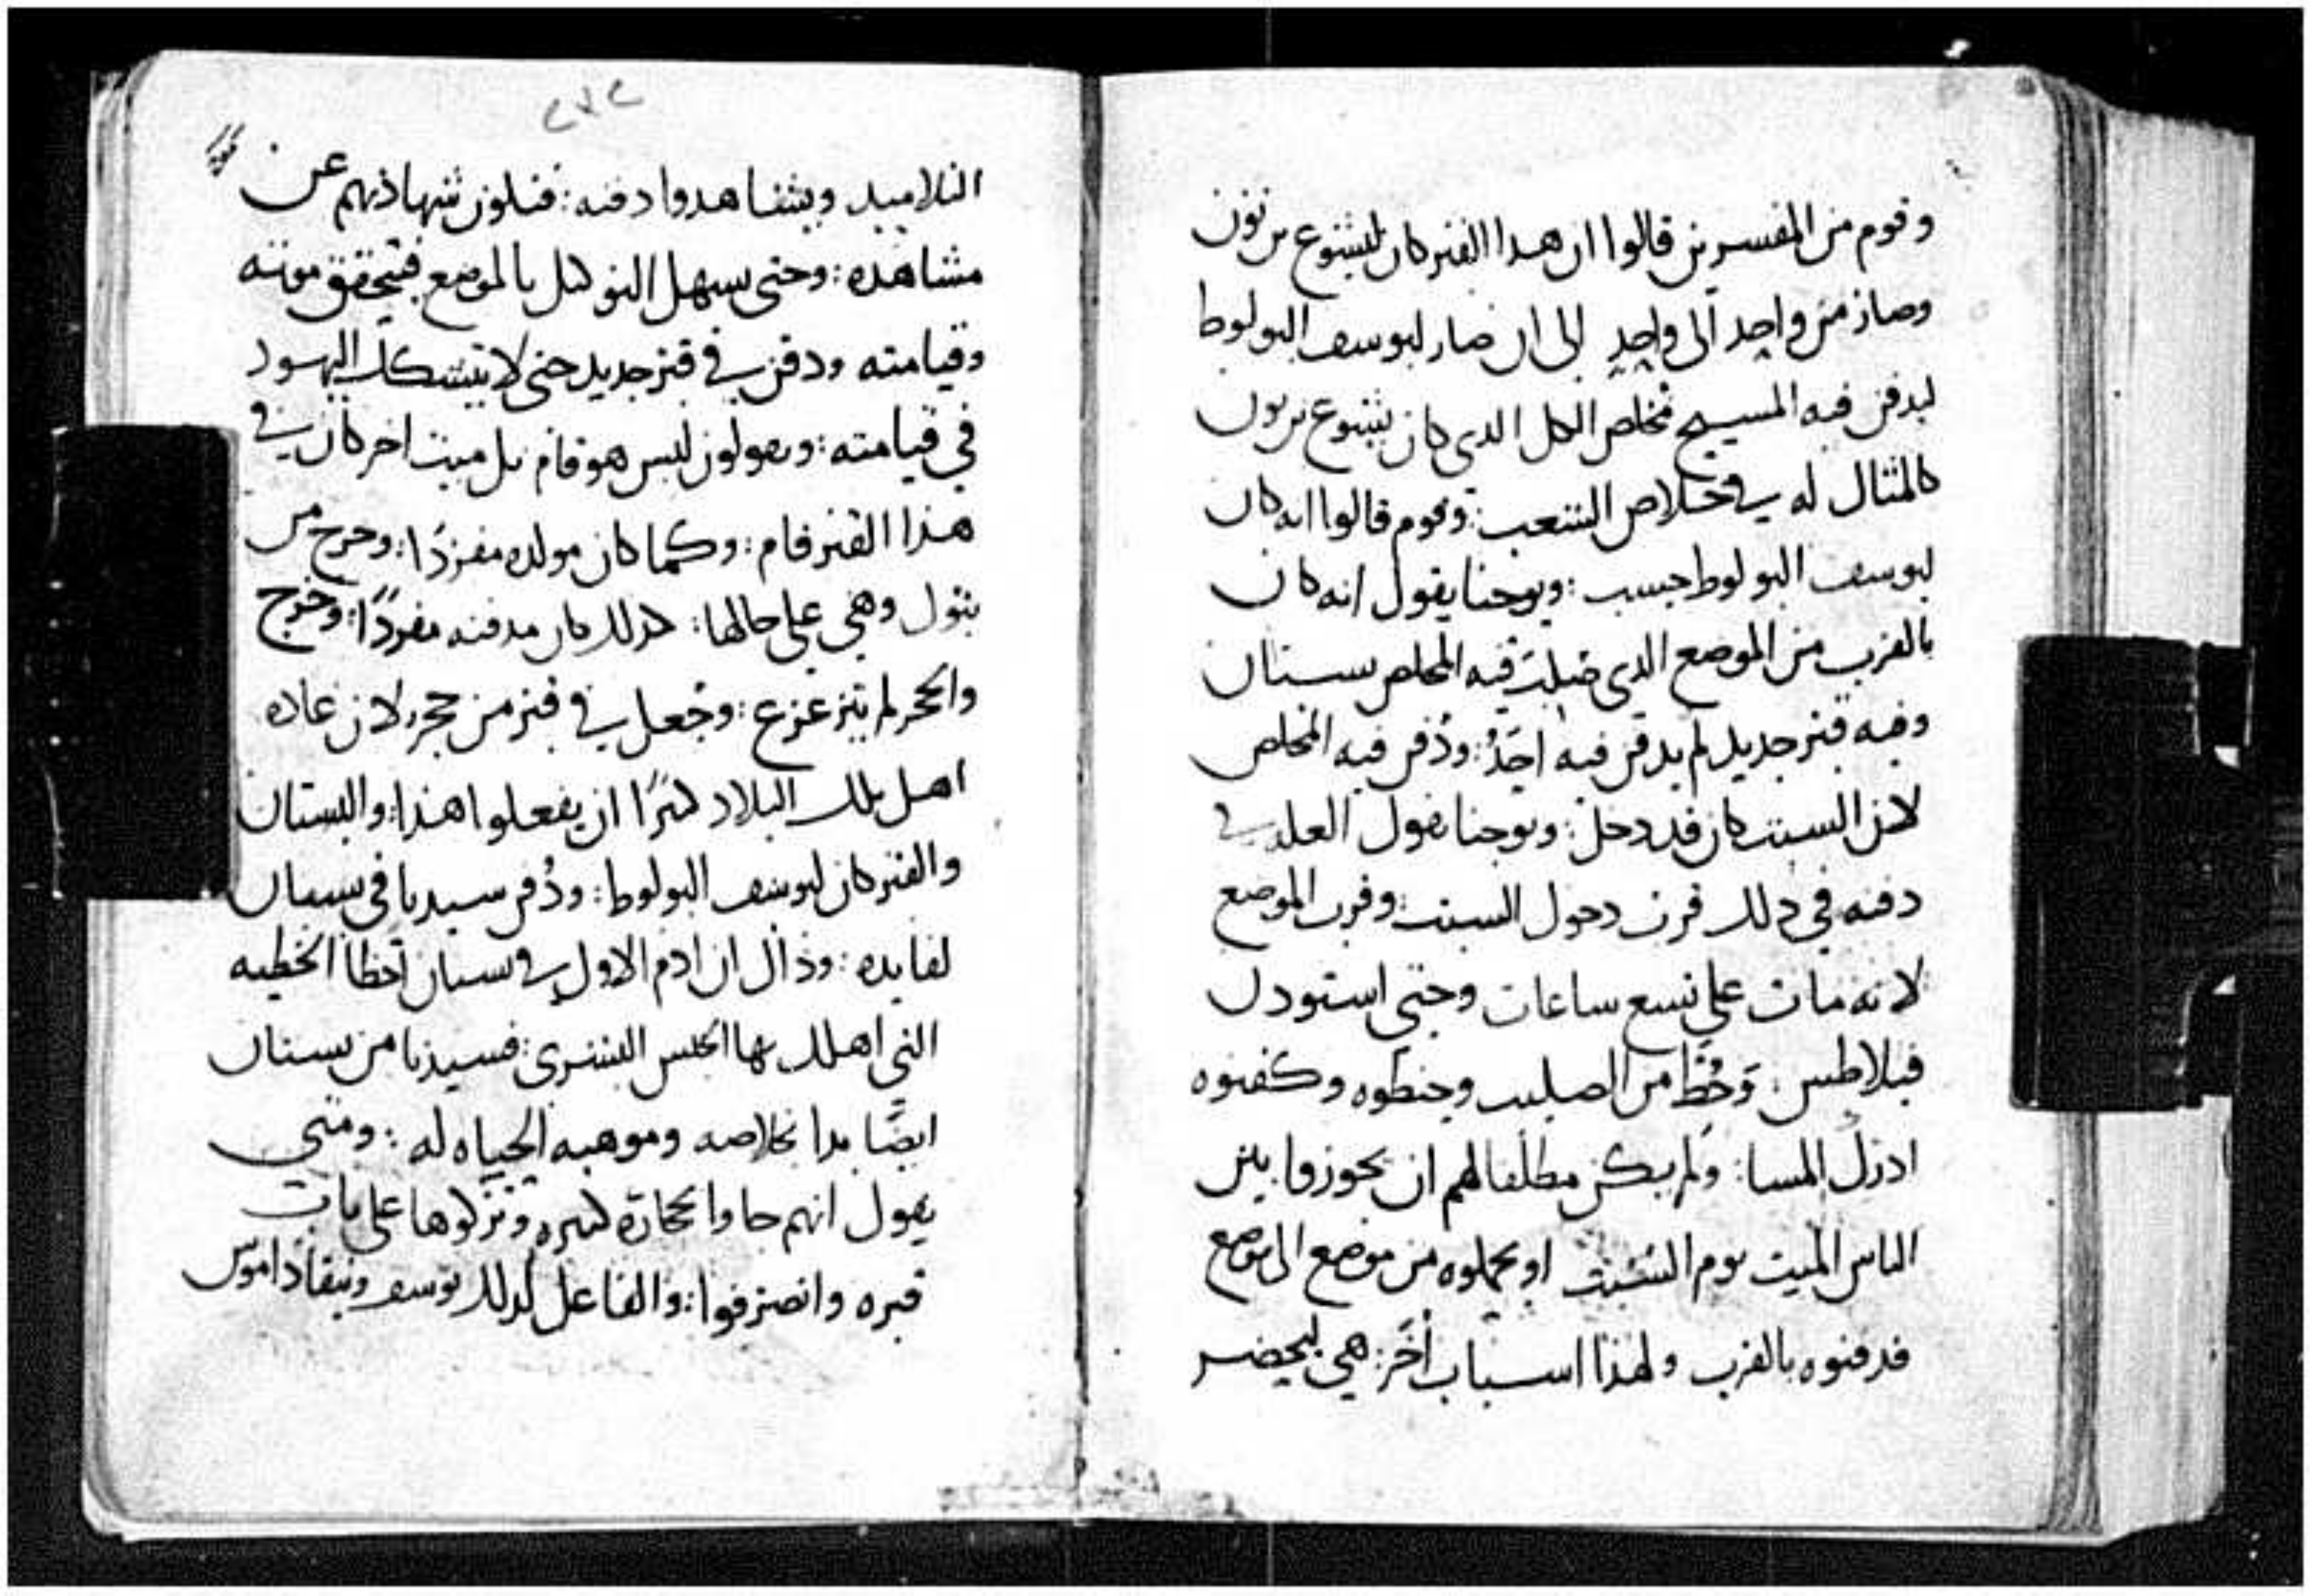 وقوم من المفسرين قالوا ان هدا القبر كان ليشوع بن نون
وصار من واحد الى واحد الى ان صار ليوسف البولوطا
ليدفن فيه المسيح مخلص الكل الدى كان يشوع بن نون
كالمثال له في خلاص الشعب : وقوم قالوا انه كان
ليوسف البولوطا حسب : ويوحنا يقول انه كان
بالقرب من الموضع الدى صلب فيه المخلص بستان
وفيه قبر جديد لم يدفن فيه احدُ : ودُفن فيه المخلص
لان السبت كان قد دخل : ويوحنا يقول العله في
دفنه في دلك قرب دخول السبت : وقرب الموضع
لانه مات على تسع ساعات وحتى استودن
فيلاطس : وحُط من الصليب وحنطوه وكفنوه
ادرك المسا : ولم يكن مطلقا لهم ان يحوزوا بين
الناس الميت يوم السبت او يحملوه من موضع الى موضع
فدفنوه بالقرب ولهذا اسباب أخَر : هي ليحضر
٢٧٢
التلاميد ويشاهدوا دفنه : فتكون شهادتهم عن
مشاهده : وحتى يسهل التوكيل بالموضع فيتحقق موته
وقيامته ودفن في قبر جديد حتى لا يتشكك اليهود
في قيامته : ويقولون ليس هو قام بل ميت اخر كان في
هذا القبر قام : وكما كان مولده مفردًا : وخرج من
بتول وهي على حالها : كدلك كان مدفنه مفردًا : وخرج
والحجر لم يتزعزع : وجُعل في قبر من حجر لان عاده
اهل تلك البلاد كثيرًا ان يفعلوا هذا : والبستان
والقبر كان ليوسف البولوطا : ودُفن سيدنا في بستان
لفايده : وذاك ان ادم الاول في بستان اخطا الخطيه
التي اهلك بها الجنس البشري : فسيدنا من بستان
ايضًا بدا بخلاصه وموهبه الحياه له : ومتى
يقول انهم جاوا بحجارة كبيره وتركوها على باب
قبره وانصرفوا : والفاعل لدلك يوسف ونيقاداموس